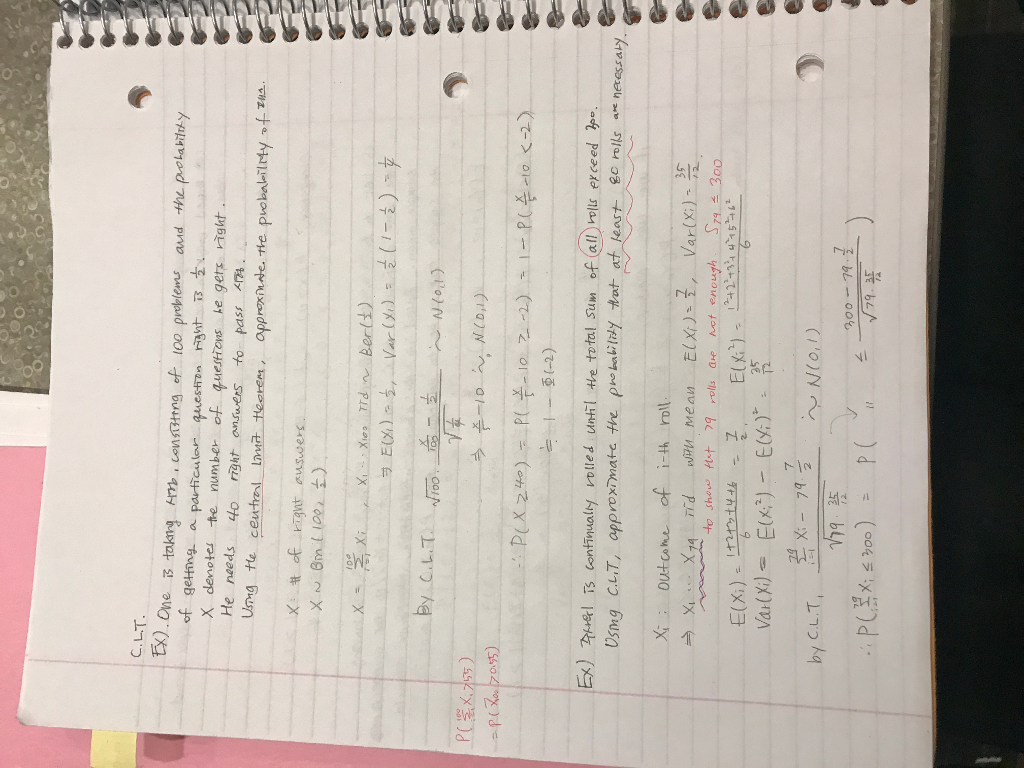 C.L.T.
Ex) One is taking consisting of 100 problems and the probability
of getting a particular question right is 1/2.
X denotes the number of questions he gets right.
He needs 40 right answers to pass
Using the central limit theorem, approximate the probability of
X : # of right answers
X ~ Bin (100, 1/2)
X = Σ_{i=1}^{100} Xi , X1 ... X100 iid ~ Ber(1/2)
⇒ E(Xi) = 1/2, Var(Xi) = 1/2 (1 - 1/2) = 1/4
by C.L.T. √100 · (X/100 - 1/2) / √(1/4) ~ N(0,1)
⇒ X/5 - 10 ~ N(0,1)
P(Σ_{i=1}^{100} Xi > 55)
= P(X̄100 > 0.55)
∴ P(X ≥ 40) = P(X/5 - 10 ≥ -2) = 1 - P(X/5 - 10 < -2)
≑ 1 - Φ(-2)
Ex) is continually rolled until the total sum of all rolls exceed 300.
Using C.L.T, approximate the probability that at least 80 rolls are necessary.
Xi : Outcome of i-th roll.
⇒ X1 ... X79 iid with mean E(Xi) = 7/2, Var(Xi) = 35/12
to show that 79 rolls are not enough S79 ≤ 300
E(Xi) = (1+2+3+4+6)/6 = 7/2 E(Xi²) = (1²+2²+3²+4²+5²+6²)/6
Var(Xi) = E(Xi²) - E(Xi)² = 35/12
by C.L.T, (Σ_{i=1}^{79} Xi - 79 · 7/2) / √(79 · 35/12) ~ N(0,1)
∴ P(Σ_{i=1}^{79} Xi ≤ 300) = P( " ≤ (300 - 79 · 7/2) / √(79 · 35/12) )